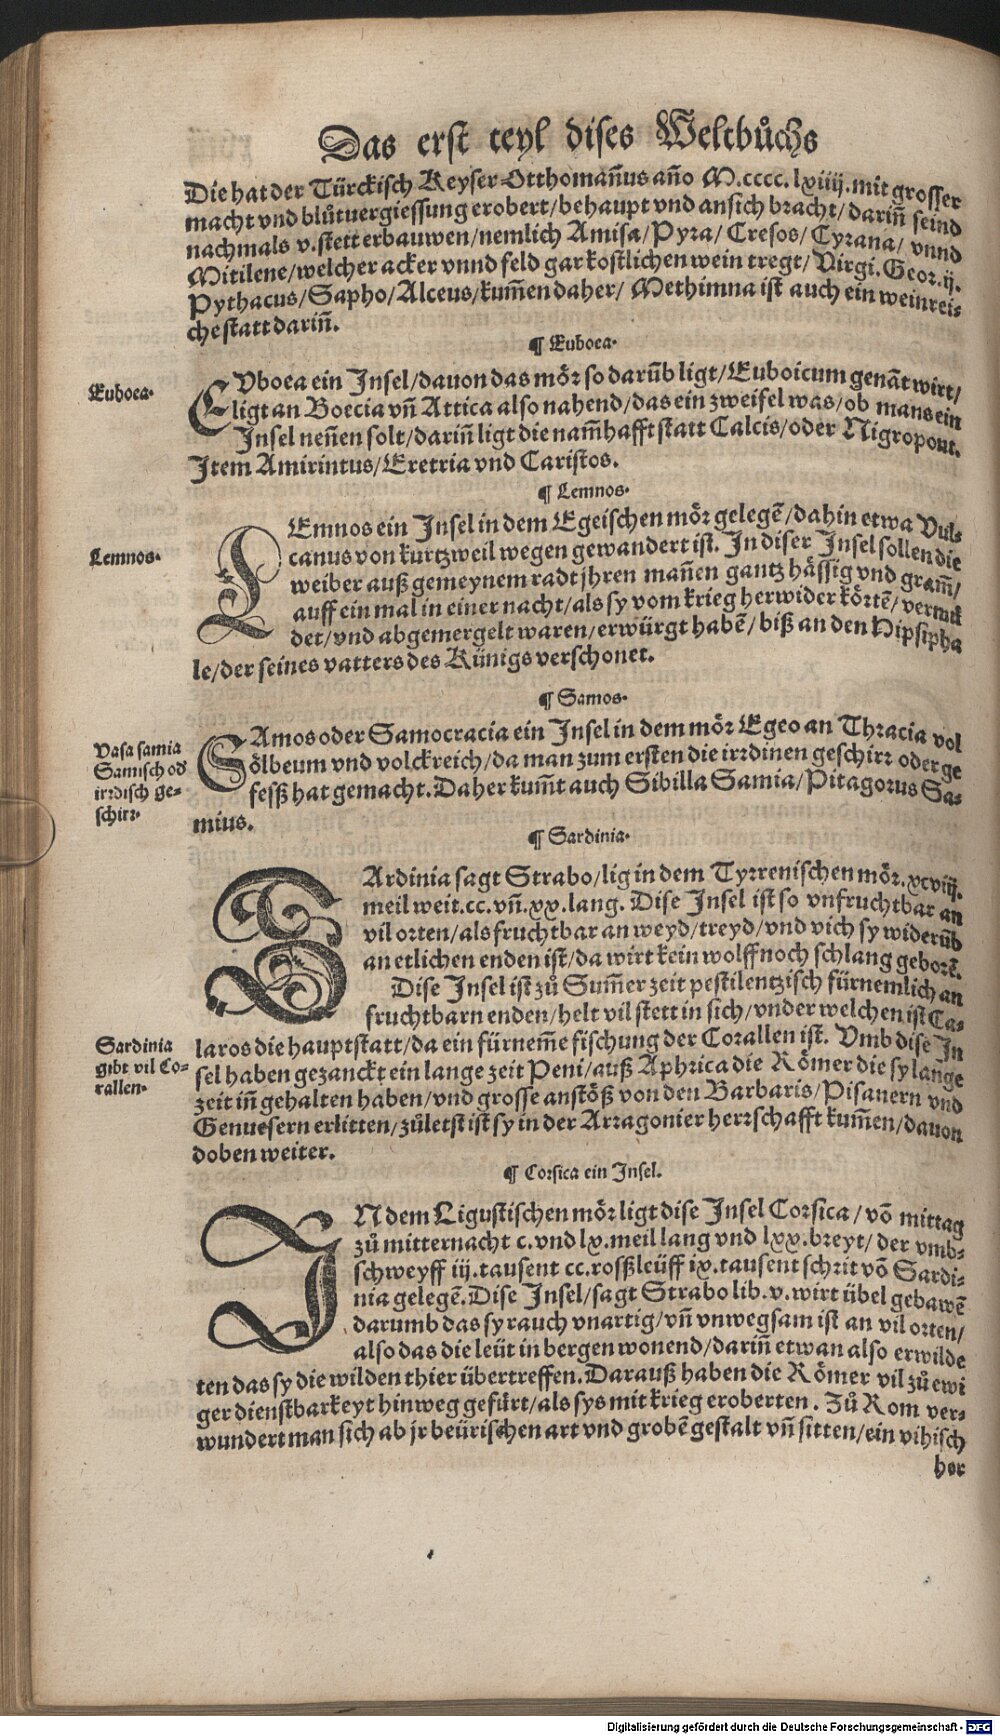 Das erst teyl dises Weltbůchs
Die hat der Türckisch Keyser Otthomañus año M.cccc.lxiiij. mit grosser
macht vnd blůtuergiessung erobert/behaupt vnd an sich bracht/dariñ seind
nachmals v. stett erbauwen/nemlich Amisa/Pyra/Cresos/Cyrana/vnnd
Mitilene/welcher acker vnnd feld gar kostlichen wein tregt/Virgi. Geor. ij.
Pythacus/Sapho/Alceus/kum̃en daher/Methimna ist auch ein weinrei-
che statt dariñ.
¶ Euboea.
Euboea.
EVboea ein Insel/dauon das mör so darũb ligt/Euboicum genãt wirt/
ligt an Boecia vñ Attica also nahend/das ein zweifel was/ob mans ein
Insel neñen solt/dariñ ligt die nam̃hafft statt Calcis/oder Nigropont.
Item Amirintus/Eretria vnd Caristos.
¶ Lemnos.
Lemnos.
LEmnos ein Insel in dem Egeischen mör gelegẽ/dahin etwa Vul-
canus von kurtzweil wegen gewandert ist. In diser Insel sollen die
weiber auß gemeynem radt jhren mañen gantz hässig vnd gram̃/
auff ein mal in einer nacht/als sy vom krieg herwider körtẽ/vermü
det/vnd abgemergelt waren/erwürgt habẽ/biß an den Hipsipha
le/der seines vatters des Künigs verschonet.
¶ Samos.
Vasa samia
Samisch od
irrdisch ge-
schirr.
SAmos oder Samocracia ein Insel in dem mör Egeo an Thracia vol
ölbeum vnd volckreich/da man zum ersten die irrdinen geschirr oder ge
fesß hat gemacht. Daher kum̃t auch Sibilla Samia/Pitagorus Sa-
mius.
¶ Sardinia.
SArdinia sagt Strabo/lig in dem Tyrrenischen mör. xcviij.
meil weit. cc. vñ. xx. lang. Dise Insel ist so vnfruchtbar an
vil orten/als fruchtbar an weyd/treyd/vnd vich sy widerũb
an etlichen enden ist/da wirt kein wolff noch schlang geborẽ.
Dise Insel ist zů Sum̃er zeit pestilentzisch fürnemlich an
fruchtbarn enden/helt vil stett in sich/vnder welchen ist Ca-
Sardinia
gibt vil Co-
rallen.
laros die hauptstatt/da ein fürnem̃e fischung der Corallen ist. Vmb dise In
sel haben gezanckt ein lange zeit Peni/auß Aphrica die Römer die sy lange
zeit iñ gehalten haben/vnd grosse anstöß von den Barbaris/Pisanern vnd
Genuesern erlitten/zůletst ist sy in der Arragonier herrschafft kum̃en/dauon
doben weiter.
¶ Corsica ein Insel.
IN dem Ligustischen mör ligt dise Insel Corsica/võ mittag
zů mitternacht c. vnd lx. meil lang vnd lxx. breyt/der vmb-
schweyff iij. tausent cc. rosßleüff ix. tausent schrit võ Sardi-
nia gelegẽ. Dise Insel/sagt Strabo lib. v. wirt übel gebawẽ
darumb das sy rauch vnartig/vñ vnwegsam ist an vil orten/
also das die leüt in bergen wonend/dariñ etwan also erwilde
ten das sy die wilden thier übertreffen. Darauß haben die Römer vil zů ewi
ger dienstbarkeyt hinweg gefürt/als sys mit krieg eroberten. Zů Rom ver-
wundert man sich ab jr beürischen art vnd grobẽ gestalt vñ sitten/ein vihisch
her
Digitalisierung gefördert durch die Deutsche Forschungsgemeinschaft - DFG